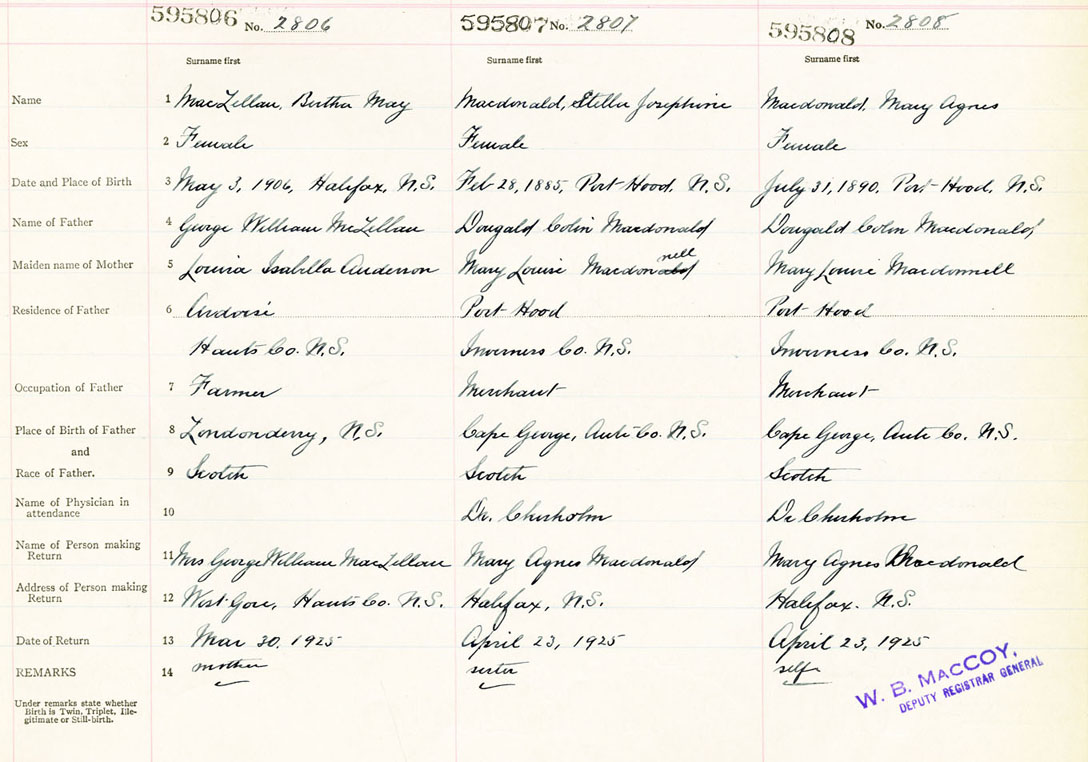 595806 No. 2806 595807 No. 2807 595808 No. 2808
Surname first Surname first Surname first
Name 1 MacLellan, Bertha May Macdonald, Stella Josephine Macdonald, Mary Agnes
Sex 2 Female Female Female
Date and Place of Birth 3 May 3, 1906, Halifax, N.S. Feb 28, 1885, Port Hood, N.S. July 31, 1890, Port Hood, N.S.
Name of Father 4 George William McLellan Dougald Colin Macdonald Dougald Colin Macdonald
nell
Maiden name of Mother 5 Louisa Isabella Anderson Mary Louise Macdonald Mary Louise Macdonnell
Residence of Father 6 Port Hood Port Hood
Hants Co. N.S. Inverness Co. N.S. Inverness Co. N.S.
Occupation of Father 7 Farmer Merchant Merchant
Place of Birth of Father 8 Londonderry, N.S. Cape George, Anti Co. N.S. Cape George, Anti Co. N.S.
and
Race of Father. 9 Scotch Scotch Scotch
Name of Physician in
attendance 10 Dr. Chisholm Dr Chisholm
Name of Person making
Return 11 Mrs George William MacLellan Mary Agnes Macdonald Mary Agnes Macdonald
Address of Person making
Return 12 West Gore, Hants Co. N.S. Halifax, N.S. Halifax. N.S.
Date of Return 13 Mar 30, 1925 April 23, 1925 April 23, 1925
REMARKS 14 mother sister self
W. B. MACCOY,
DEPUTY REGISTRAR GENERAL
Under remarks state whether
Birth is Twin, Triplet, Ille-
gitimate or Still-birth.